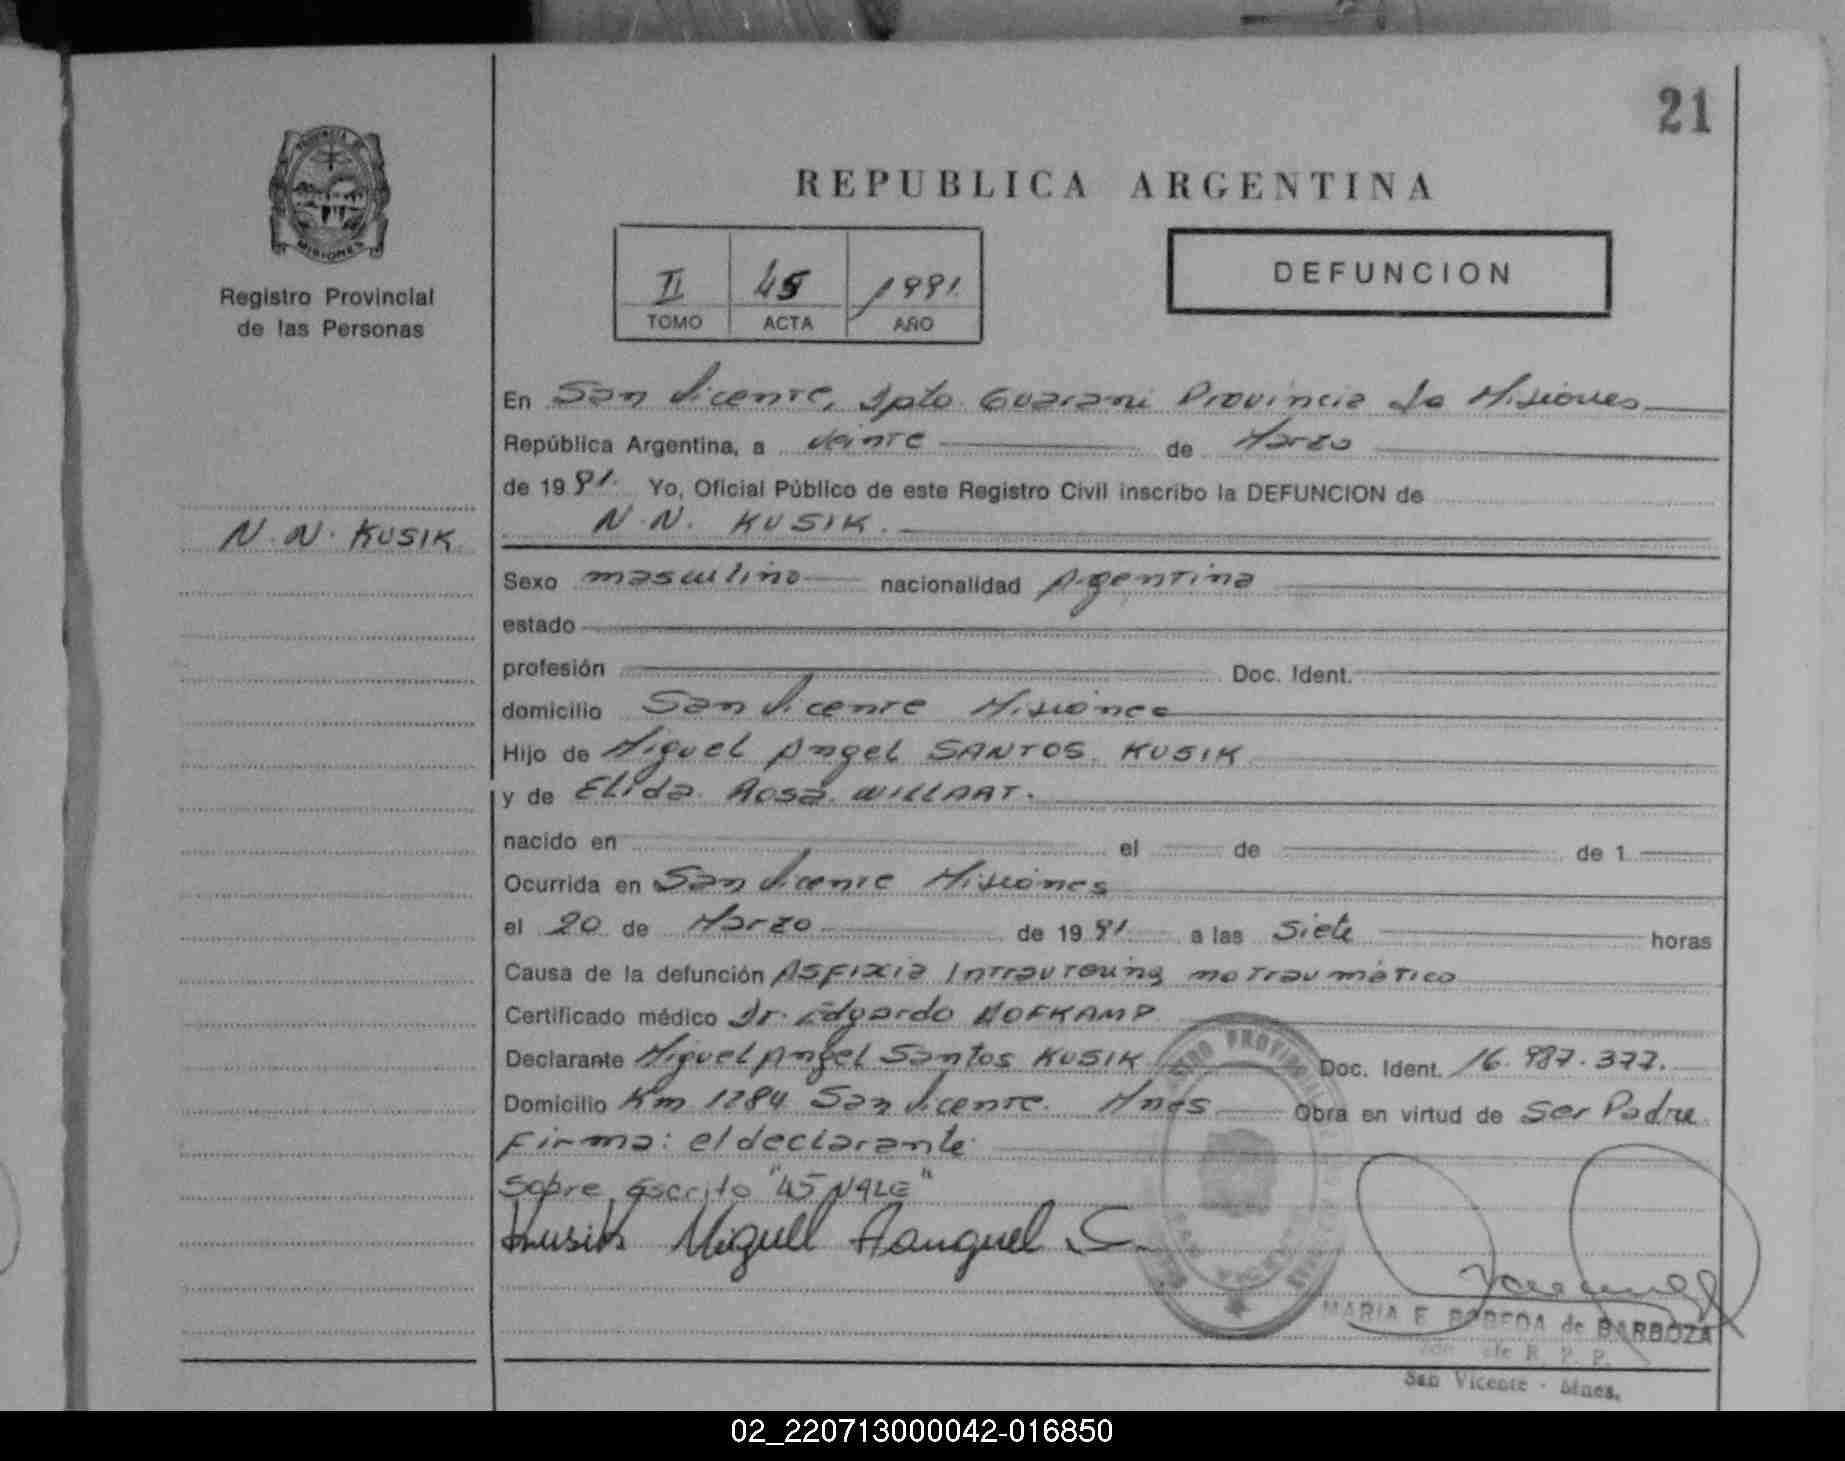 21
REPUBLICA ARGENTINA
PROVINCIA DE
MISIONES
Registro Provincial
de las Personas
II 45 1991
TOMO ACTA AÑO
DEFUNCION
En San Vicente, Dpto Guarani Provincia de Misiones
República Argentina, a veinte de Marzo
de 1991. Yo, Oficial Público de este Registro Civil inscribo la DEFUNCION de
N.N. KUSIK
N.N. KUSIK.
Sexo masculino nacionalidad Argentina
estado
profesión Doc. Ident.
domicilio San Vicente Misiones
Hijo de Miguel Angel SANTOS KUSIK
y de Elida Rosa WILLAAT.
nacido en el de de 1
Ocurrida en San Vicente Misiones
el 20 de Marzo de 1991 a las Siete horas
Causa de la defunción ASFIXIA Intrauterina no Traumático
Certificado médico Dr. Edgardo HOFKAMP
Declarante Miguel Angel Santos KUSIK Doc. Ident. 16.987.377.
Domicilio Km 1284 San Vicente. Mnes Obra en virtud de Ser Padre.
Firma: el declarante
Sobre escrito "45 VALE"
Kusik Miguell Aanguel S.
MARIA E. BOBEDA de BARBOZA
de R. P. P.
San Vicente - Mnes.
02_220713000042-016850